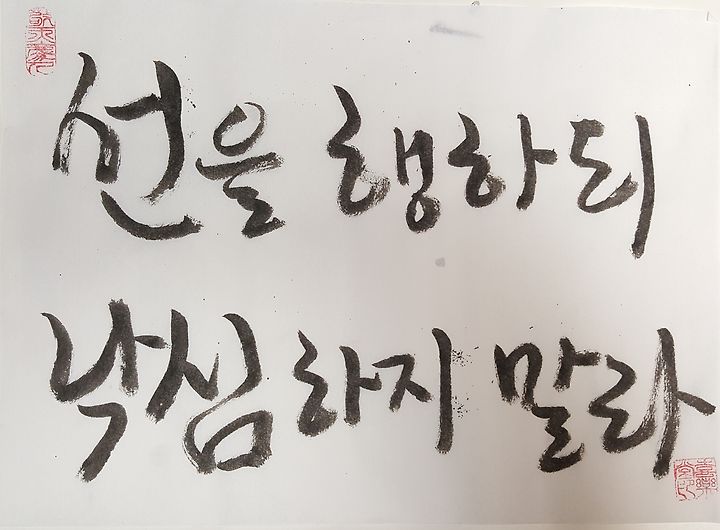 선을 행하되
낙심하지 말라